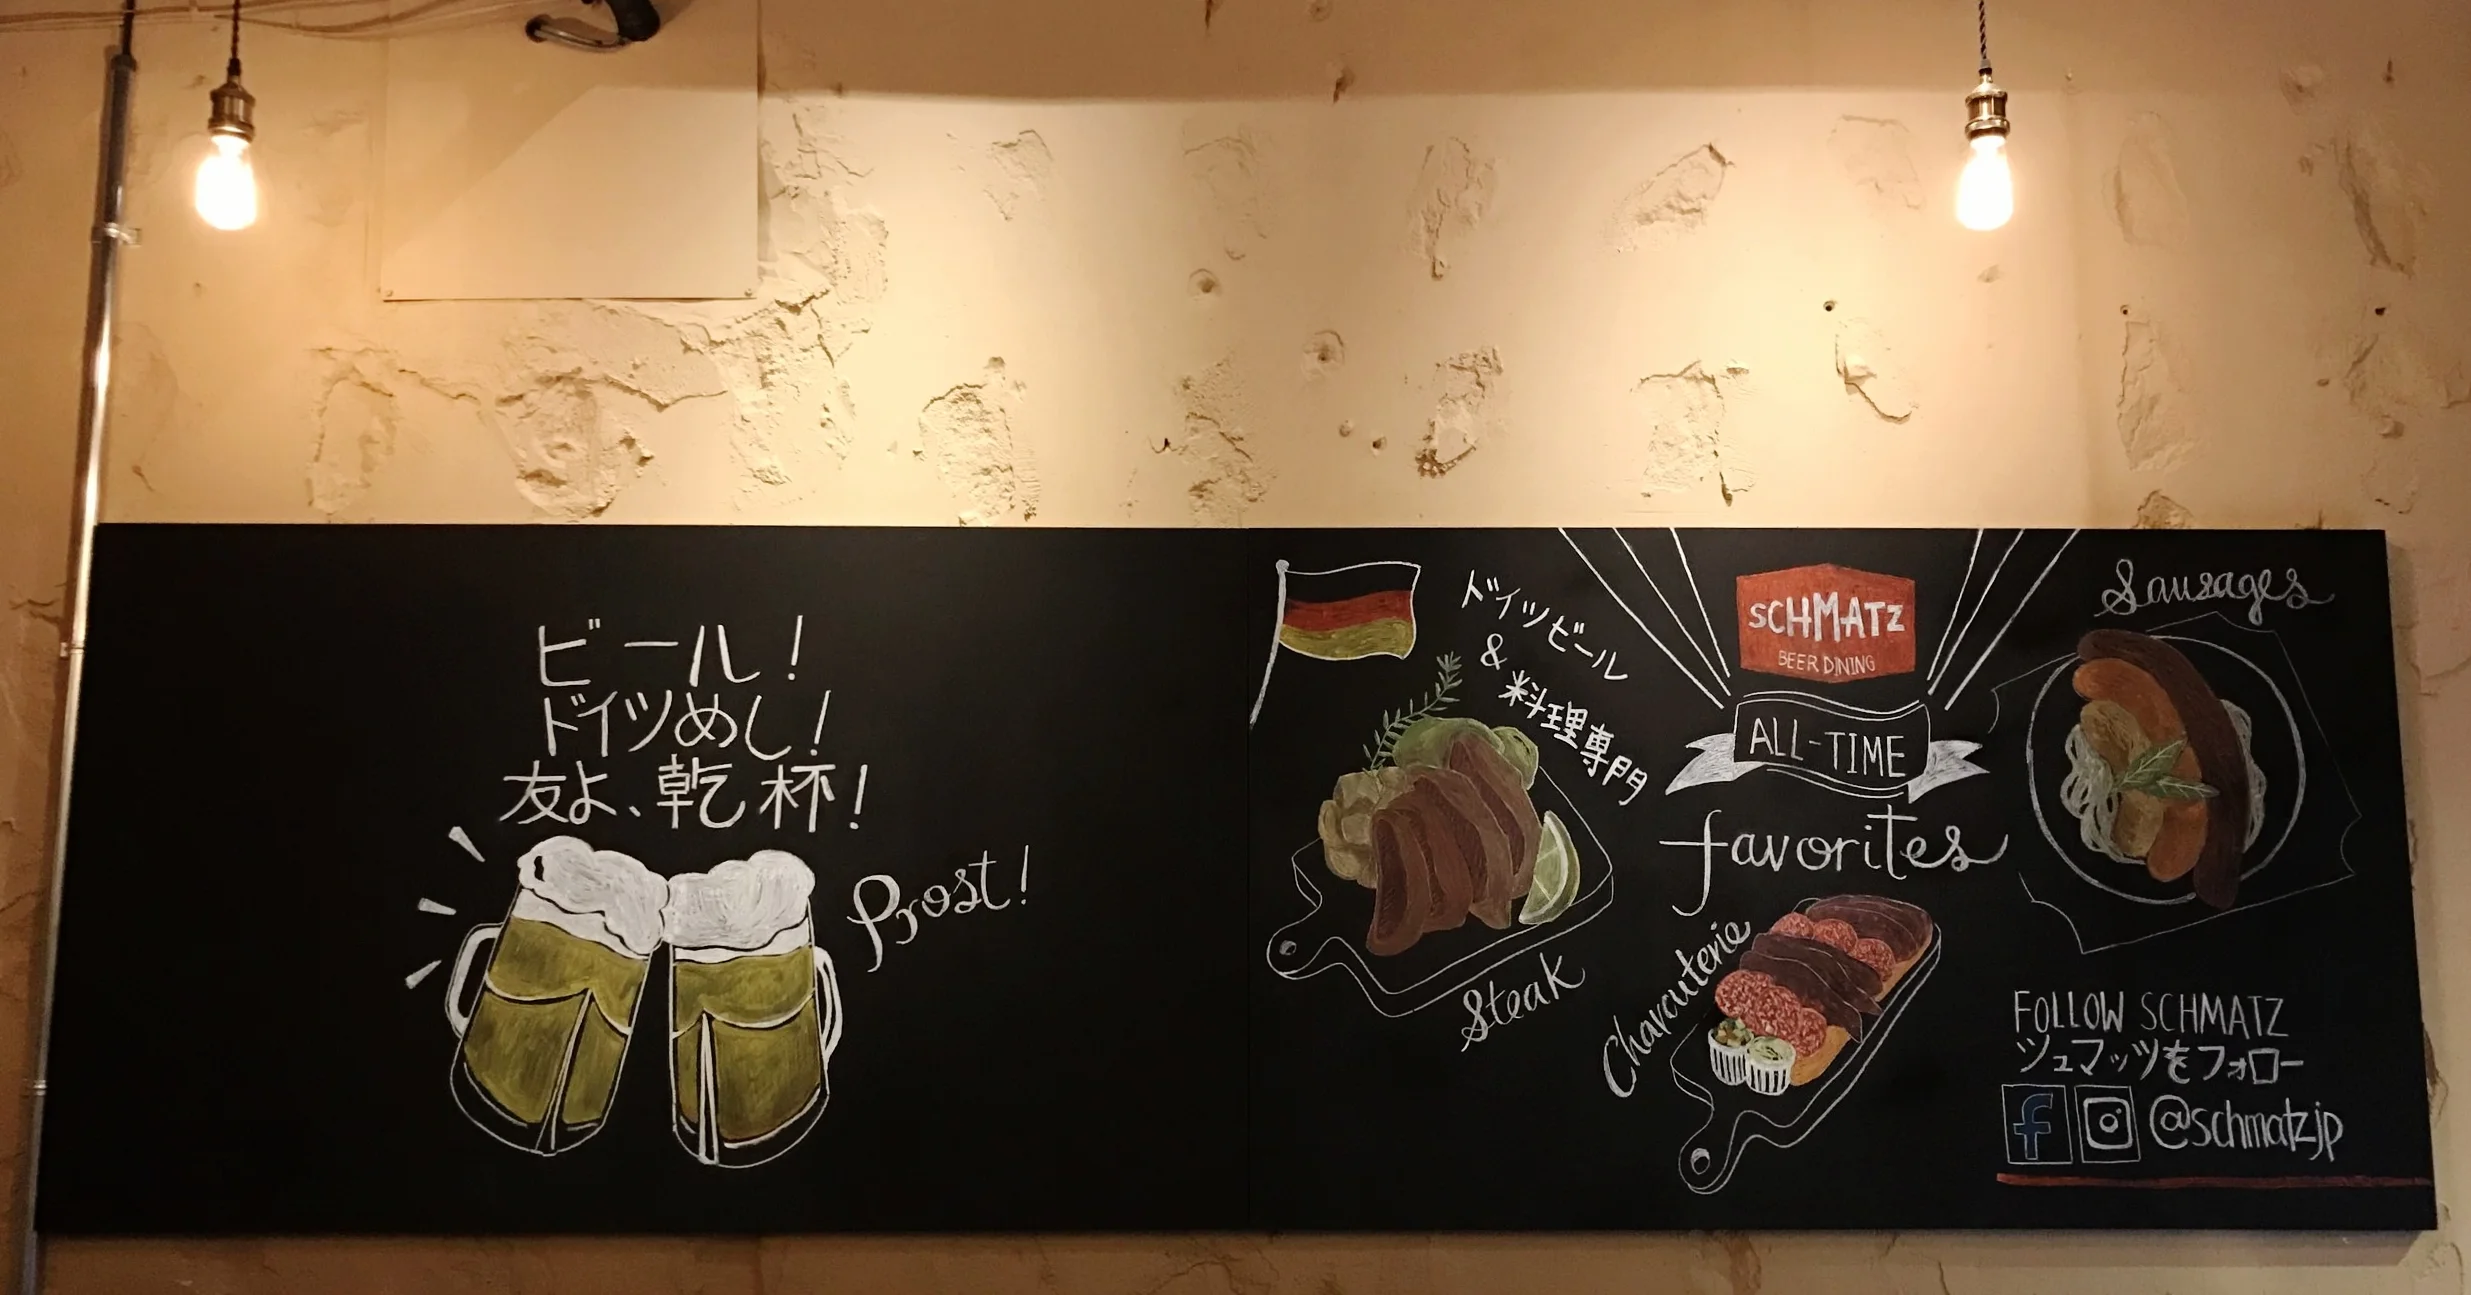 ビール！
ドイツめし！
友よ、乾杯！
Prost!
ドイツビール
&
料理専門
SCHMATZ
BEER DINING
ALL-TIME
favorites
Steak
Charcuterie
Sausages
FOLLOW SCHMATZ
ツュマッツをフォロー
f
@schmatzjp